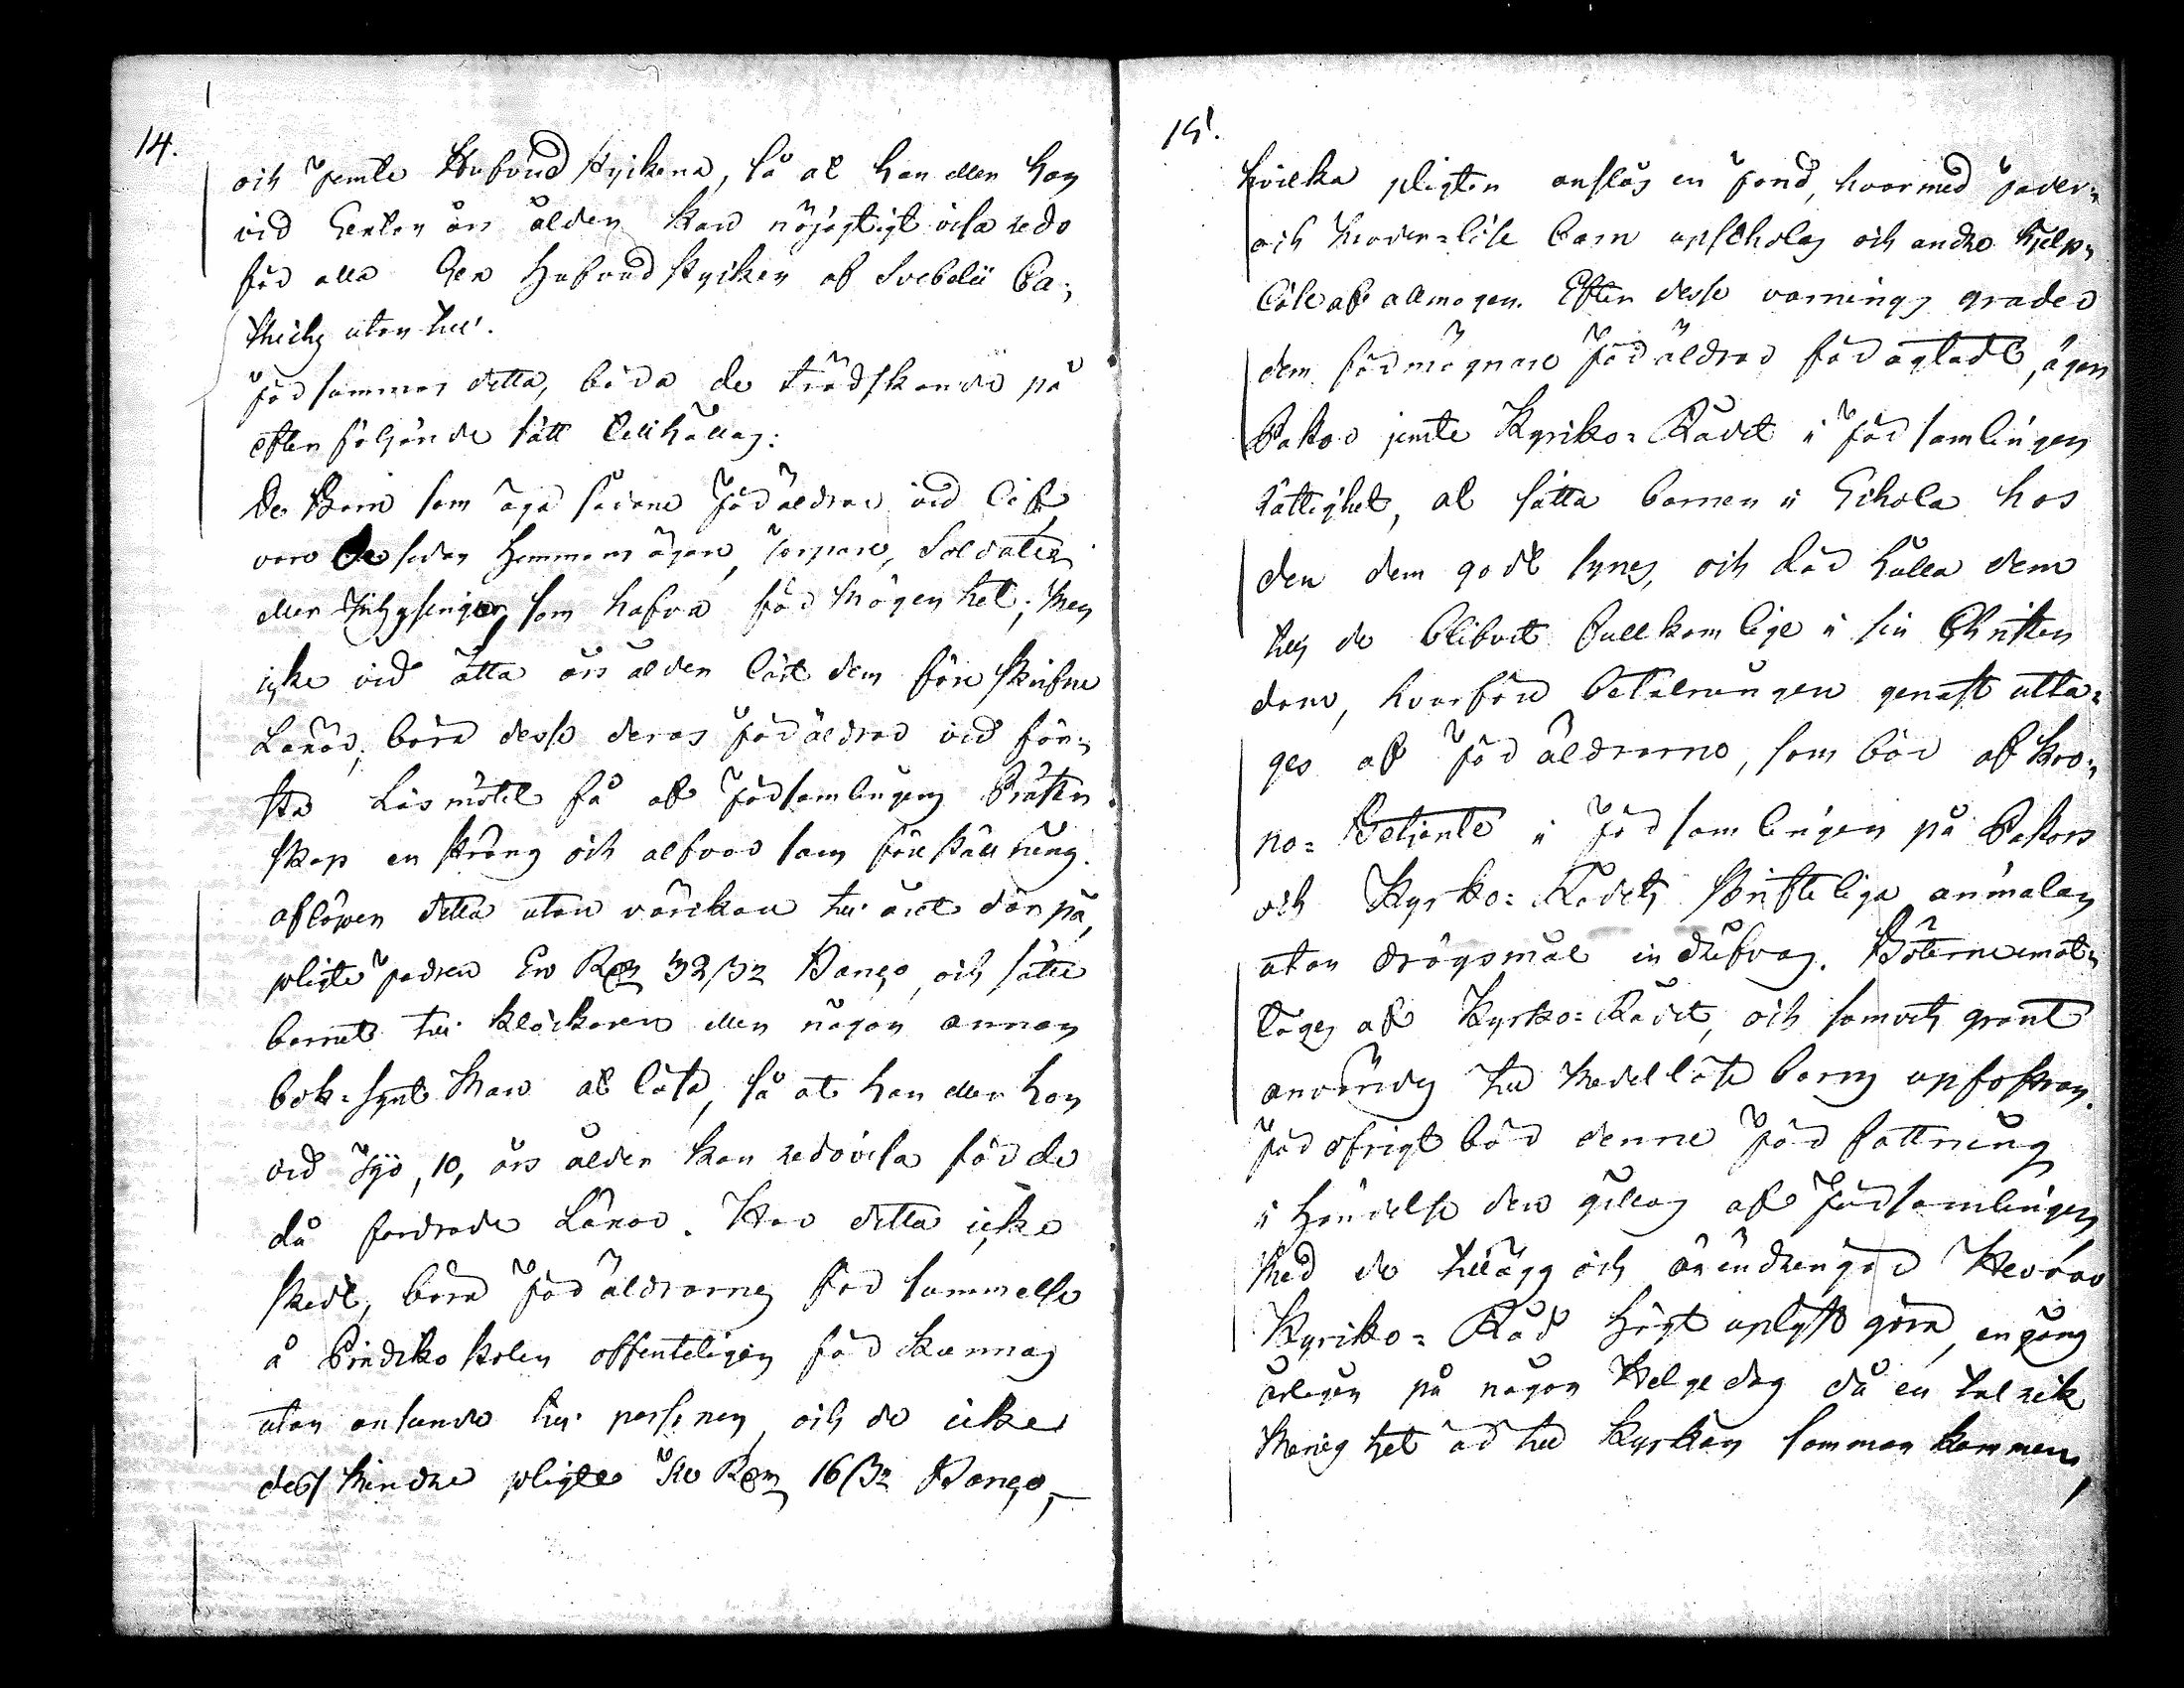 14.
och jemte Hufvud stycken, så at han eller hon
vid Sexton års ålder kan nöjagtigt visa redo
för alla Sex Hufvud stycken af Svebelii Ca-
thiches utan till.
Försummas detta, böra de tredskande på
efterföljande sätt tillhållas:
De Barn som äga sådane Föräldrar vid lif,
vare de sedan Hemmans ägare, torpare, Soldater
eller Inhysingar, som hafva förmögenhet; men
icke vid åtta års ålder läst dem föreskrifne
Läxor, böra desse deras Föräldrar vid för-
sta Läsmötet få af Församlingens Präster-
skap en sträng och alfvarsam föreställning.
aflöper detta utan värikan til året därpå,
pligte Fadren En Rdr 32/3 Banco, och sätte
barnet til klåckaren eller någon annan
bok-synt Man at läsa, så at han eller hon
vid Tyo, 10, års ålder kan redovisa för de
då fordrade Läxor. Har detta icke
skedt, böra Föräldrarnes försummelse
å Predikostolen offenteligen förkunnas
utan anseende til personen, och de icke
dess mindre pligte Tre Rdr 16/3 Banco,
15.
hvilka pligter anslås en Fond, hvarmed Fader-
och Moder-löse barn upscholas och andre hjelp-
löse af allmogen. Efter desse varnings grader
dem förmögnare Föräldrar föragtadt, ägen
Pastor jemte Kyriko-Rådet i Församlingen
rättighet, at sätta barnen i Schola hos
den dem godt synes, och där hålla dem
tils de blifvit fullkomlige i sin Christen
dom, hvarföre betalningen genast utta-
ges af Föräldrarne, som bör af Kro-
no-Betjente i Församlingen på Pastors
och Kyrko-Rådets skrifteliga anmälan
utan drögsmål indrifvas. Böterne emot-
tages af Kyrko-Rådet, och samvets grant
användes til Medellöse barns upfostran.
För öfrigt bör denne Författning
i händelse den gillas af Församlingen
med de tillägg och ärindringar Herrar
Kyriko-Råd högt uplyst göra, en gång
årligen på någon Helgedag då en talrik
Menighet är til Kyrkan sammankommen,